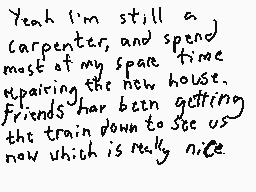 Yeah I'm still a
carpenter, and spend
most of my spare time
repairing the new house.
Friends har been getting
the train down to see us
now which is really nice